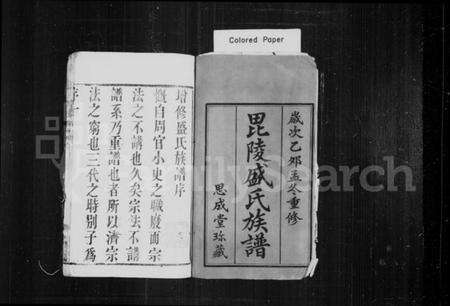 Colored Paper
歲次乙卯孟冬重修
毘陵盛氏族譜
思成堂珍藏
增修盛氏族譜序
慨自周官小史之職廢而宗
法之不講也久矣宗法不講
譜系乃重譜也者所以濟宗
法之窮也三代之時別子為
FamilySearch